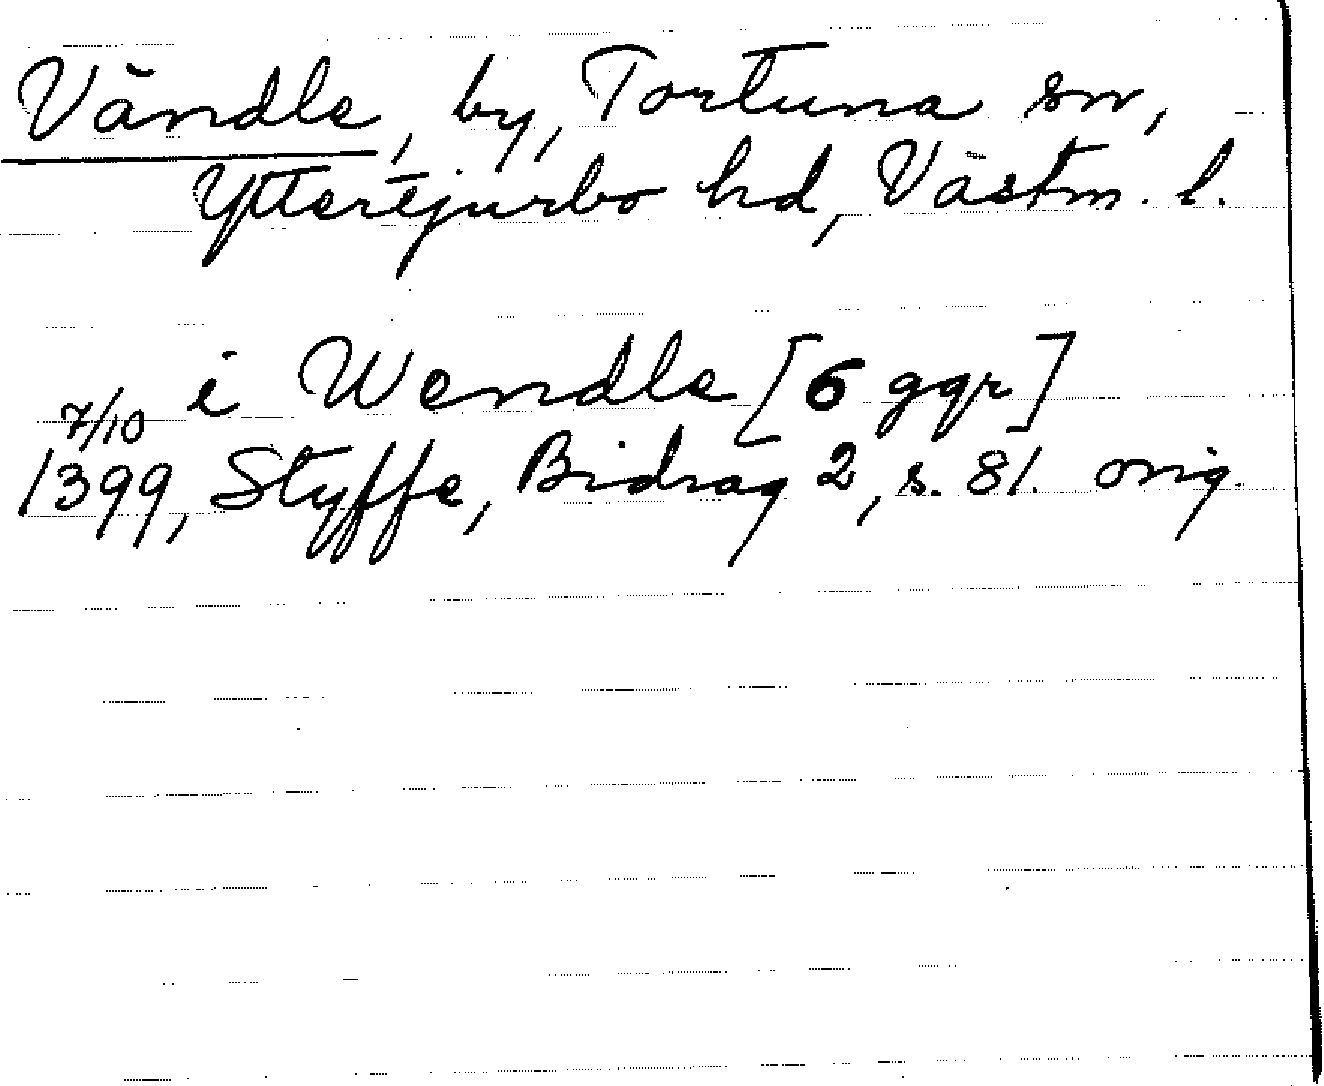 Vändle, by, Tortuna sn,
Yttertjurbo hd, Västm. l.
i Wendle [6 ggr]
7/10
1399, Styffe, Bidrag 2, s. 81. orig.